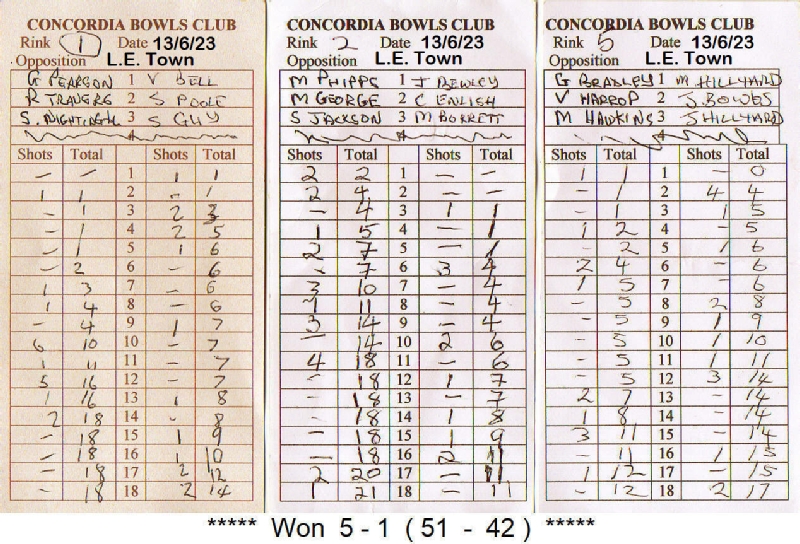 CONCORDIA BOWLS CLUB
Rink 1 Date 13/6/23
Opposition L.E. Town
G PEARSON 1 V BELL
R TRAVERS 2 S POOLE
S. NIGHTINGALL 3 S GUY
4
Shots Total Shots Total
- - 1 1 1
1 1 2 - 1
- 1 3 2 3
- 1 4 2 5
- 1 5 1 6
- 2 6 - 6
1 3 7 - 6
1 4 8 - 6
- 4 9 1 7
6 10 10 - 7
1 11 11 - 7
5 16 12 - 7
1 16 13 1 8
2 18 14 - 8
- 18 15 1 9
- 18 16 1 10
- 18 17 2 12
- 18 18 2 14
CONCORDIA BOWLS CLUB
Rink 2 Date 13/6/23
Opposition L.E. Town
M PHIPPS 1 J BEWLEY
M GEORGE 2 C ENLISH
S JACKSON 3 M BORRETT
4
Shots Total Shots Total
2 2 1 - -
2 4 2 - -
- 4 3 1 1
1 5 4 - 1
2 7 5 - 1
- 7 6 3 4
3 10 7 - 4
1 11 8 - 4
3 14 9 - 4
- 14 10 2 6
4 18 11 - 6
- 18 12 1 7
- 18 13 - 7
- 18 14 1 8
- 18 15 1 9
- 18 16 2 11
2 20 17 - 11
1 21 18 - 11
CONCORDIA BOWLS CLUB
Rink 5 Date 13/6/23
Opposition L.E. Town
G BRADLEY 1 M HILLYARD
V HARROP 2 J. BOWES
M HAWKINS 3 J HILLYARD
4
Shots Total Shots Total
1 1 1 - 0
- 1 2 4 4
- 1 3 1 5
1 2 4 - 5
- 2 5 1 6
2 4 6 - 6
1 5 7 - 6
- 5 8 2 8
- 5 9 1 9
- 5 10 1 10
- 5 11 1 11
- 5 12 3 14
2 7 13 - 14
1 8 14 - 14
3 11 15 - 14
- 11 16 1 15
1 12 17 - 15
- 12 18 2 17
***** Won 5 - 1 ( 51 - 42 ) *****